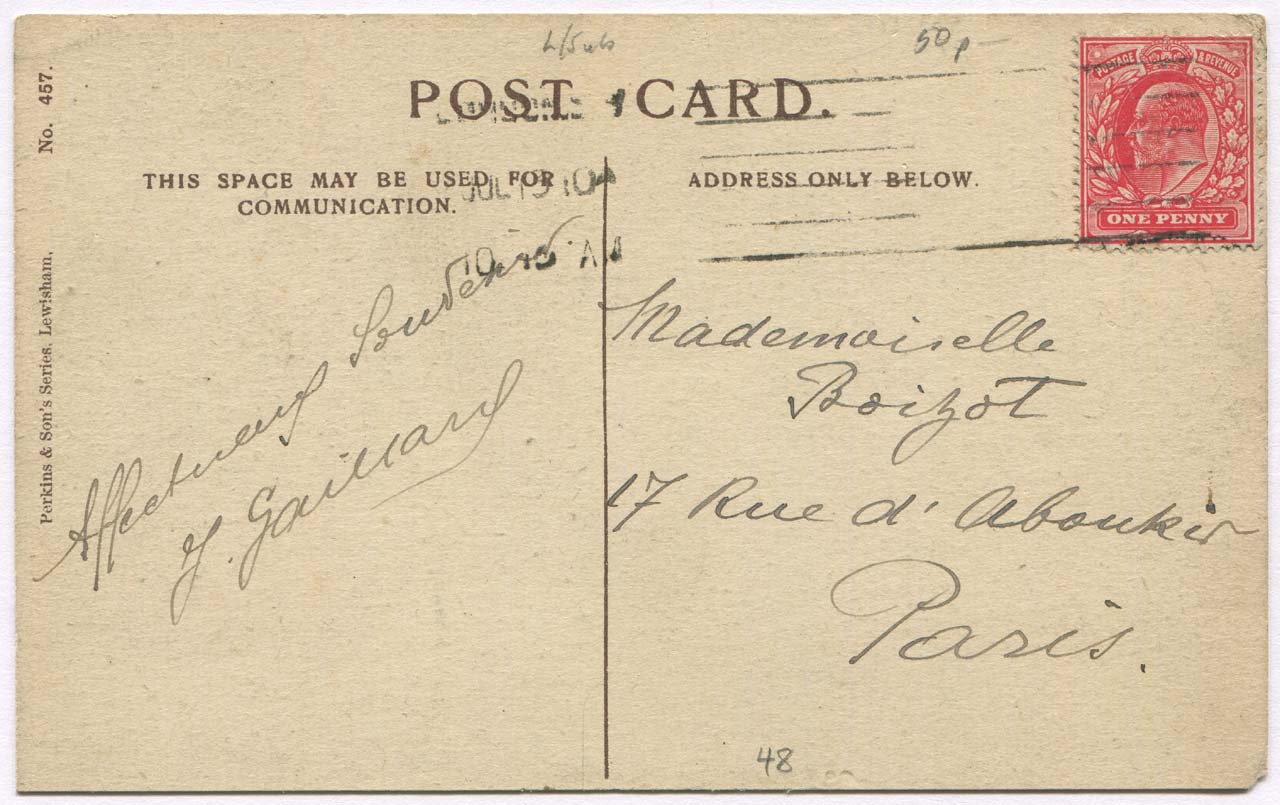 50p
POST CARD.
POSTAGE & REVENUE
ONE PENNY
No. 457.
Perkins & Son's Series. Lewisham.
THIS SPACE MAY BE USED FOR
COMMUNICATION.
ADDRESS ONLY BELOW.
JUL 15 10
10 15 AM
Souvenir
Y. Gaillard
Mademoiselle
Boizot
17 Rue d'Aboukir
Paris.
48